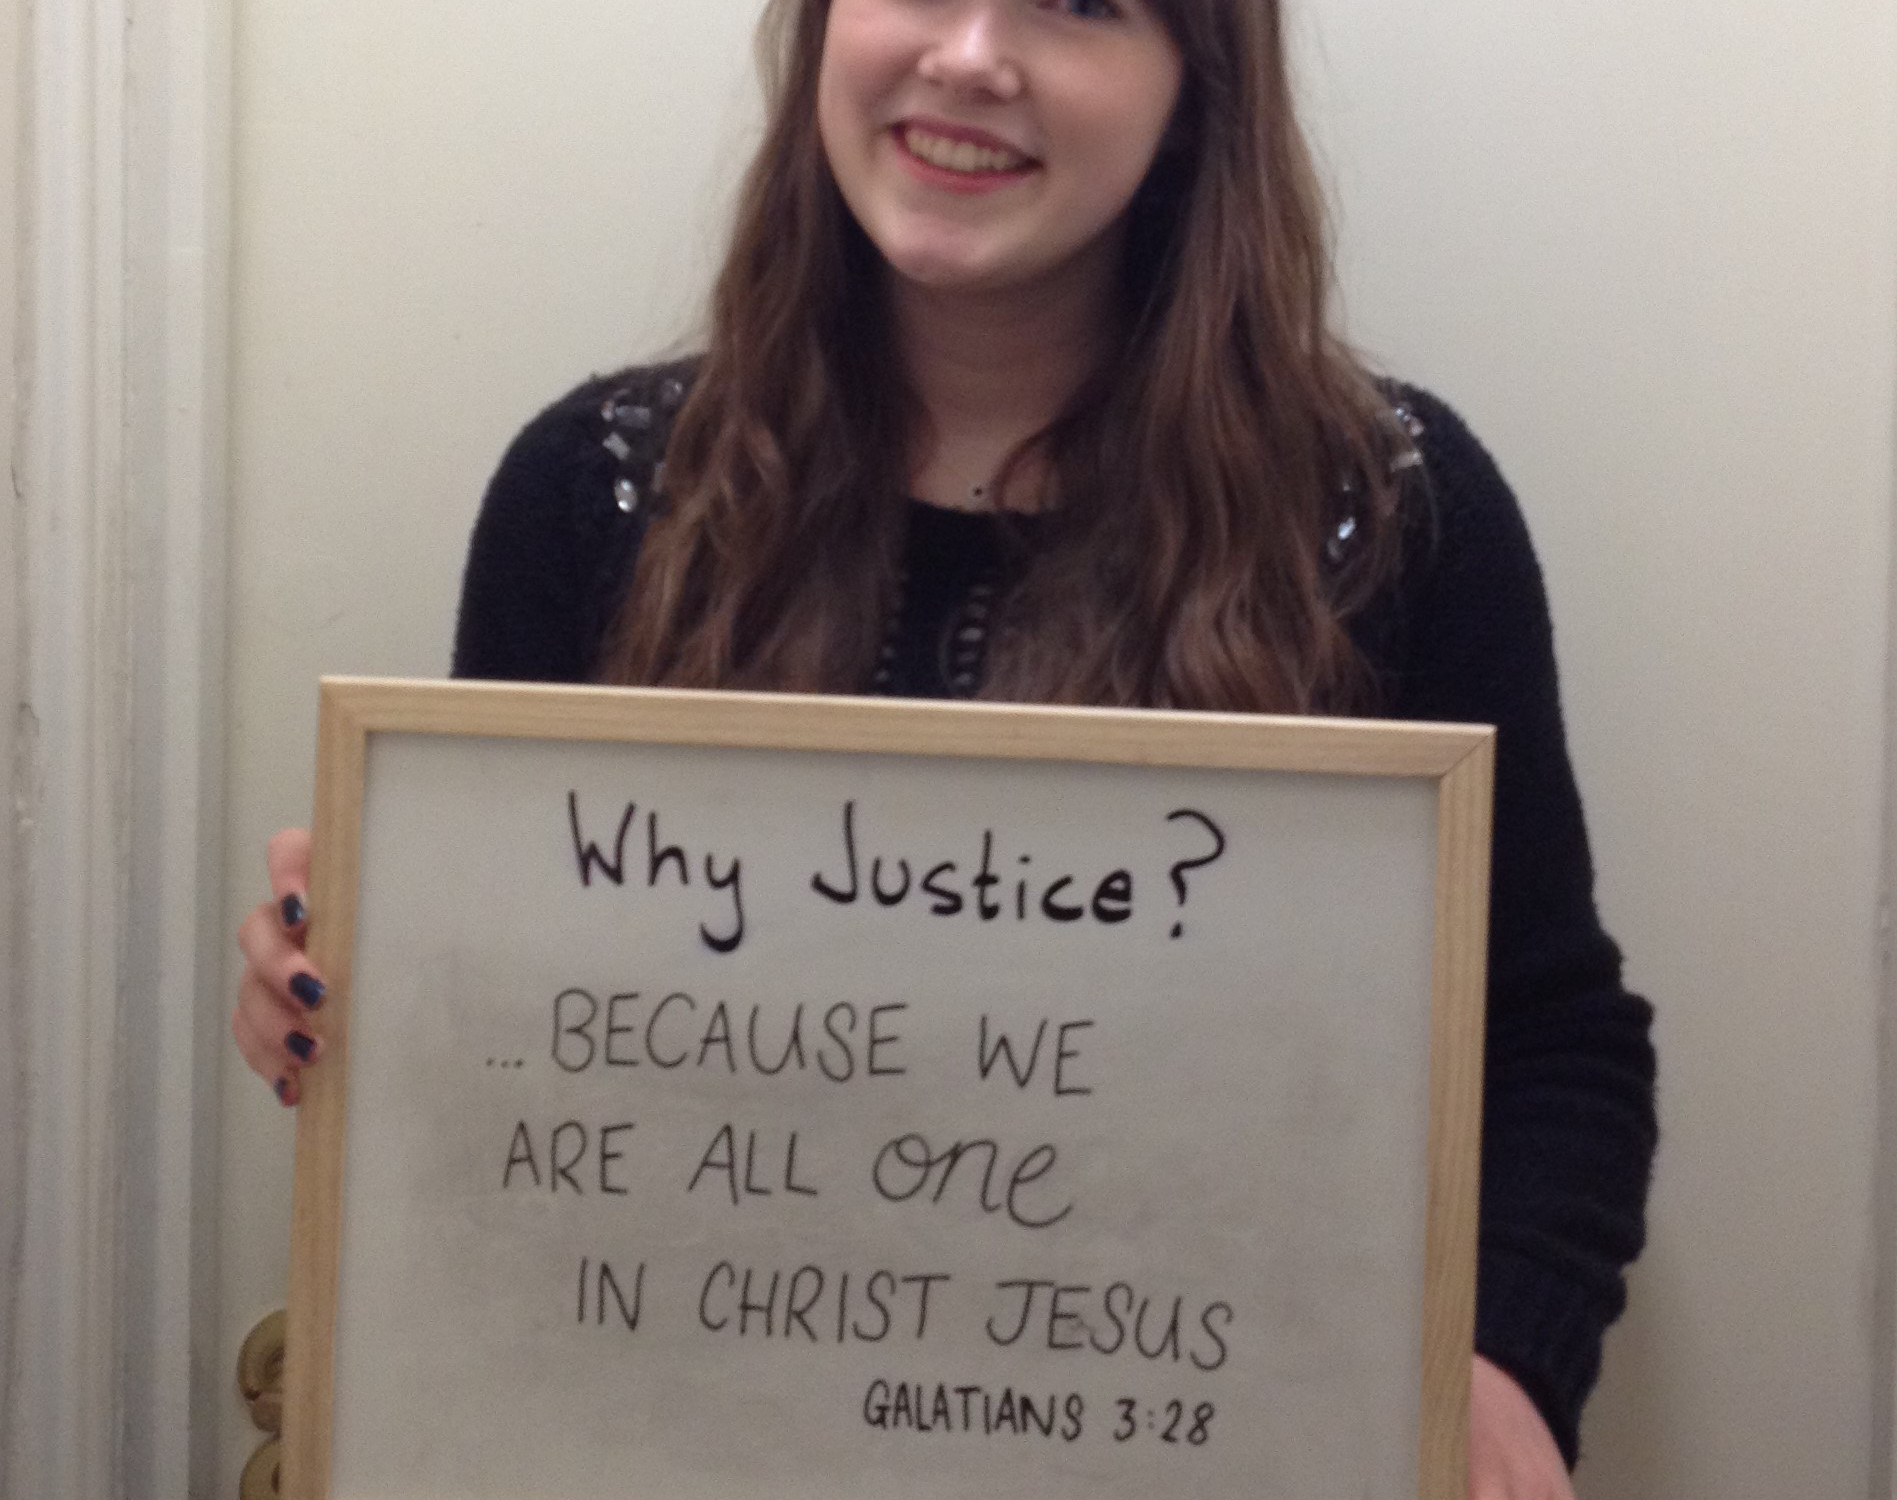 Why Justice?
...BECAUSE WE
ARE ALL one
IN CHRIST JESUS
GALATIANS 3:28